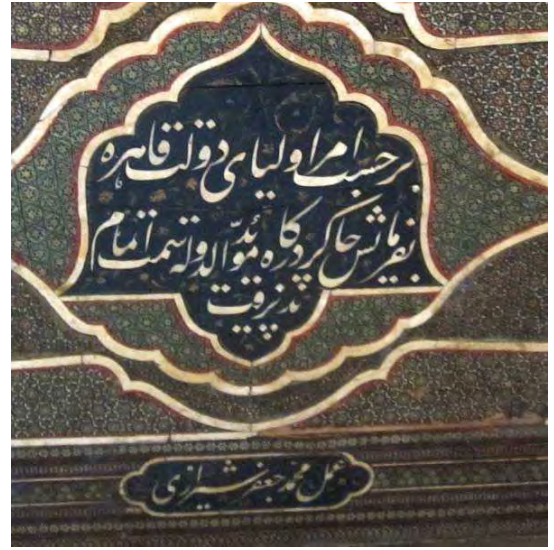 بر حسب امر اولیای دولت قاهره
بفرمایش چاکر درگاه مؤید الدوله سمت اتمام
پذیرفت
عمل محمد جعفر شیرازی